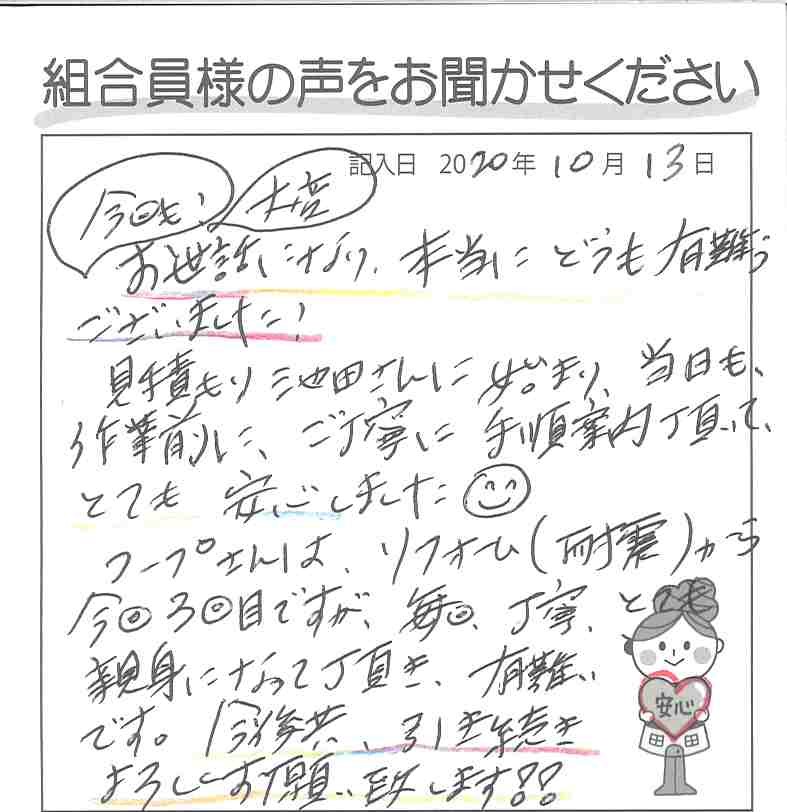 組合員様の声をお聞かせください
記入日 2020年10月13日
今回も! 大変
お世話になり、本当にどうも有難う
ございました!
見積もり池田さんに始まり、当日も、
作業前に、ご丁寧に手順案内丁頂いて、
とても安心しました
フープさんは、リフォーム(耐震)から
今回3回目ですが、毎回、丁寧、とても
親身になって丁頂き、有難い
です。今後共、引き続き
よろしくお願い致します!!
安心